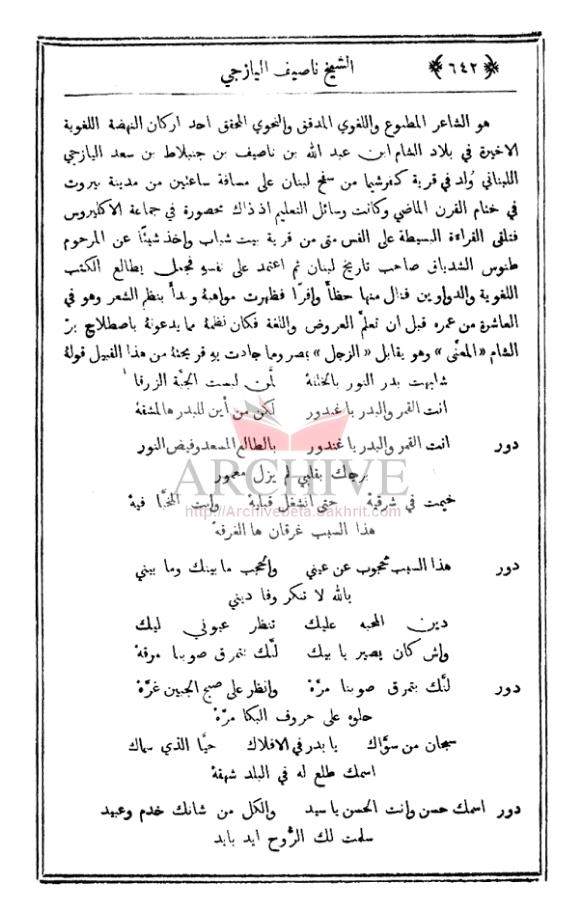 ﴿ ٦٤٢ ﴾ الشيخ ناصيف اليازجي
هو الشاعر المطبوع واللغوي المدقق والنحوي المحقق احد اركان النهضة اللغوية
الاخيرة في بلاد الشام ابن عبد الله بن ناصيف بن جنبلاط بن سعد اليازجي
اللبناني وُلد في قرية كفرشيما من سفح لبنان على مسافة ساعتين من مدينة بيروت
في ختام القرن الماضي وكانت وسائل التعليم اذ ذاك محصورة في جماعة الاكليروس
فتلقى القراءة البسيطة على القس متى من قرية بيت شباب واخذ شيئًا عن المرحوم
طنوس الشدياق صاحب تاريخ لبنان ثم اعتمد على نفسهِ فجعل يطالع الكتب
اللغوية والدواوين فنال منها حظًّا وافرًا فظهرت مواهبهُ وبدأ بنظم الشعر وهو في
العاشرة من عمره قبل ان تعلَّم العروض واللغة فكان نظمهُ مما يدعونهُ باصطلاح برّ
الشام «المعنَّى» وهو يقابل «الزجل» بمصر وما جادت بهِ قريحتهُ من هذا القبيل قولهُ
شابهت بدر النور بالخلقة لمَّن لبست الجبَّة الزرقا
انت القمر والبدر يا غندور لكن من أين للبدر هالمشقة
دور انت القمر والبدر يا غندور بالطالع المسعد وفيض النور
برجك بقلبي لم يزل معمور
خيمت في شرقيهْ حتى انشغل قبليهْ وانت المخبَّا فيهْ
هذا السبب غرقان ها الغرقهْ
دور هذا السبب محجوب عن عيني والحجب ما بينك وما بيني
بالله لا تنكر وفا ديني
دين المحبه عليك تنظر عيوني ليك
واش كان يصير يا بيك لنَّك بتمرق صوبنا مرقهْ
دور لنَّك بتمرق صوبنا مرَّهْ وانظر على صبح الجبين غرَّهْ
حلوه على حروف البكا مرَّهْ
سبحان من سوَّاك يا بدر في الافلاك حيَّا الذي سماك
اسمك طلع له في البلد شهقهْ
دور اسمك حسن وانت الحسن يا سيد والكل من شانك خدم وعبيد
سلمت لك الرُّوح ايد بايد
ARCHIVE
http://Archivebeta.Sakhrit.com